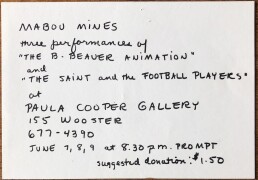 MABOU MINES
three performances of
"THE B. BEAVER ANIMATION"
and
"THE SAINT and the FOOTBALL PLAYERS"
at
PAULA COOPER GALLERY
155 WOOSTER
677-4390
JUNE 7, 8, 9 at 8.30 p.m. PROMPT
suggested donation: $1.50